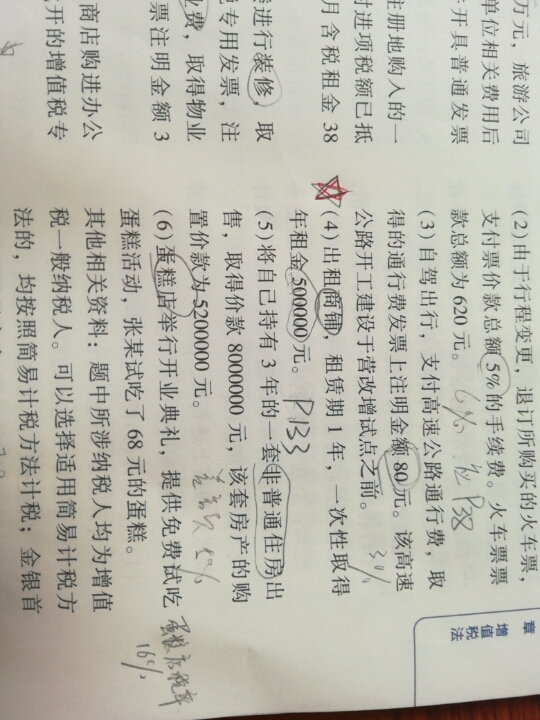 万元，旅游公司
单位相关费用后
并开具普通发票
注册地购入的一
时进项税额已抵
月含税租金 38
进行装修，取
专用发票，注
业费，取得物业
票注明金额 3
商店购进办公
开的增值税专
章
增值税法
(2) 由于行程变更，退订所购买的火车票，
支付票价款总额 5% 的手续费。火车票票
款总额为 620 元。 6% 应 P38
(3) 自驾出行，支付高速公路通行费，取
得的通行费发票上注明金额 80 元。该高速
公路开工建设于营改增试点之前。 3%
(4) 出租商铺，租赁期 1 年，一次性取得
年租金 500000 元。 P133
(5) 将自己持有 3 年的一套非普通住房出
售，取得价款 8000000 元，该套房产的购
置价款为 5200000 元。
(6) 蛋糕店举行开业典礼，提供免费试吃
蛋糕活动，张某试吃了 68 元的蛋糕。
蛋糕店税率
16%
其他相关资料：题中所涉纳税人均为增值
税一般纳税人。可以选择适用简易计税方
法的，均按照简易计税方法计税；金银首